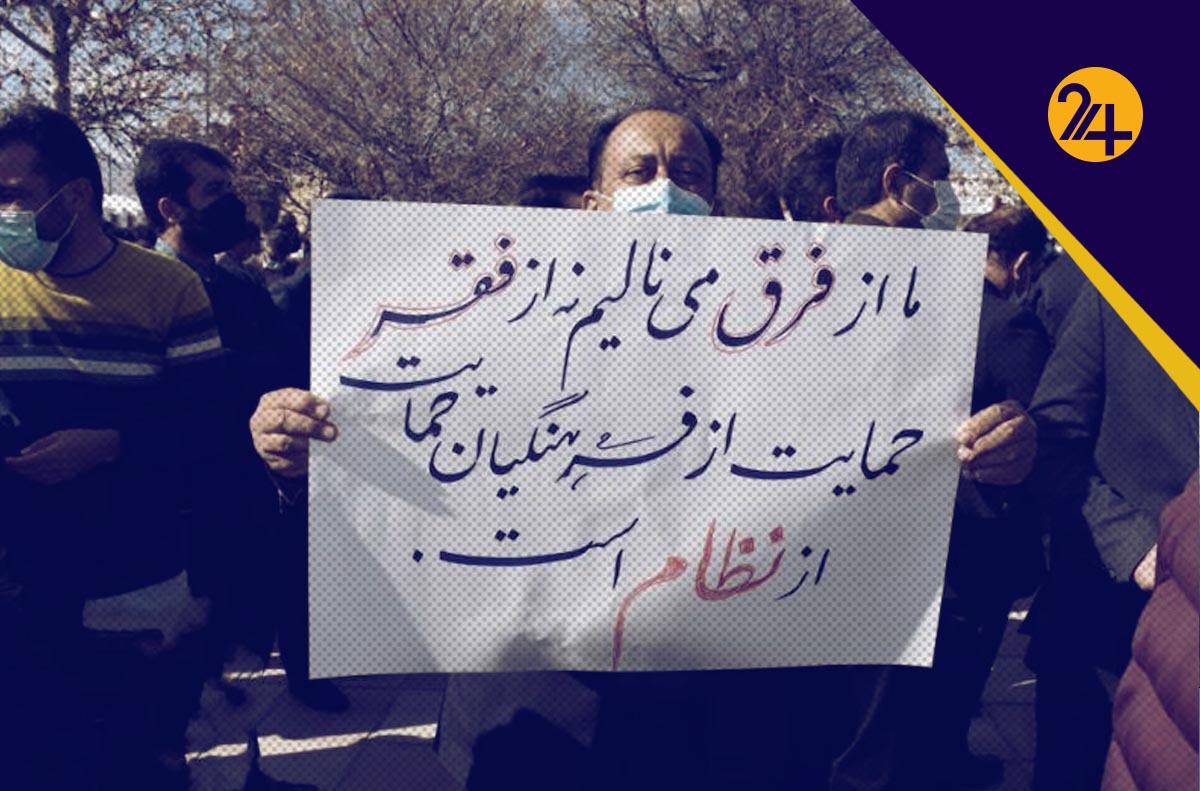 24
ما از فرق می نالیم نه از فقر
حمایت از فرهنگیان حمایت
از نظام است.